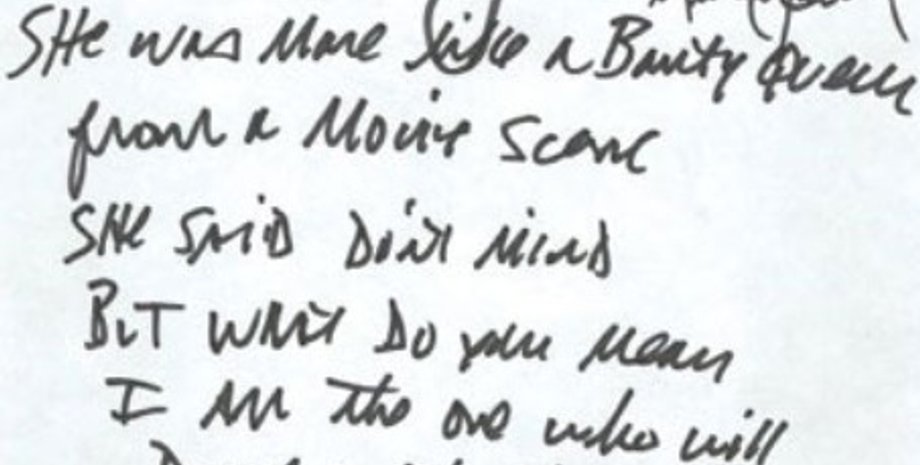 SHe was More like a Bauity Queen
from a Movie Scene
SHe SAiD Don't MinD
BuT WHAt Do you Mean
I AM The one who will